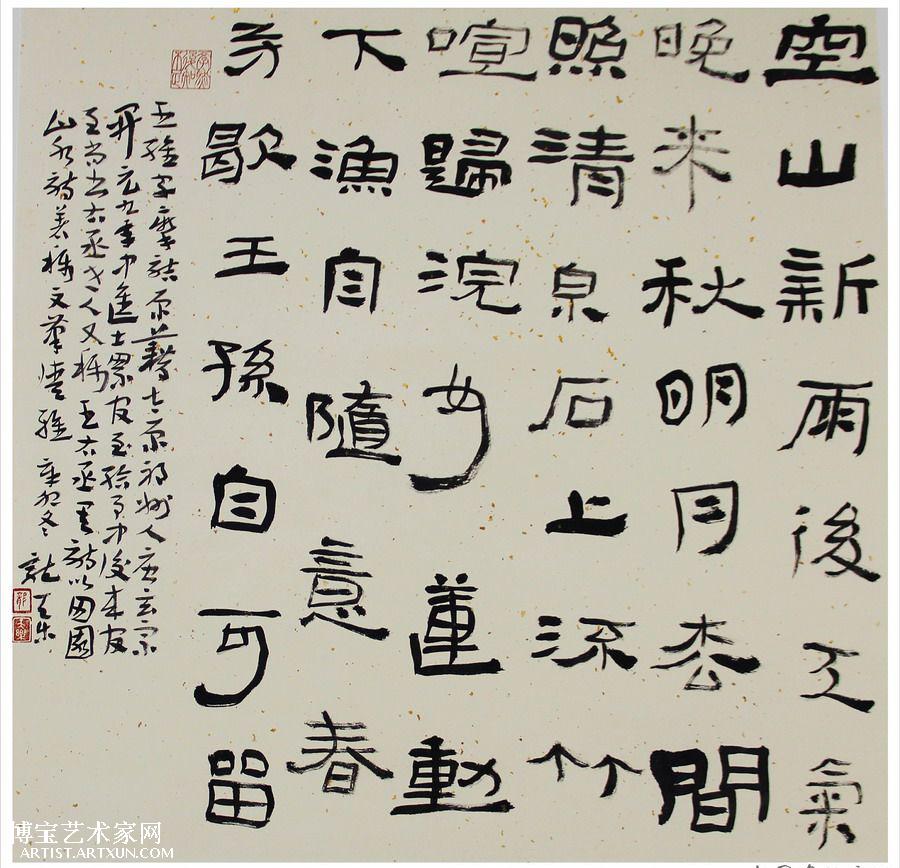 空山新雨後天氣
晚来秋明月松間
照清泉石上流竹
喧歸浣女蓮動
下漁舟隨意春
芳歇王孫自可留
王維字摩詰原籍太原祁州人唐玄宗
開元九年中進士累官至給事中後来官
至尚书右丞世人又稱王右丞其詩以田園
山水詩著稱文筆清雅 辛卯冬
博宝艺术家网
ARTIST.ARTXUN.COM